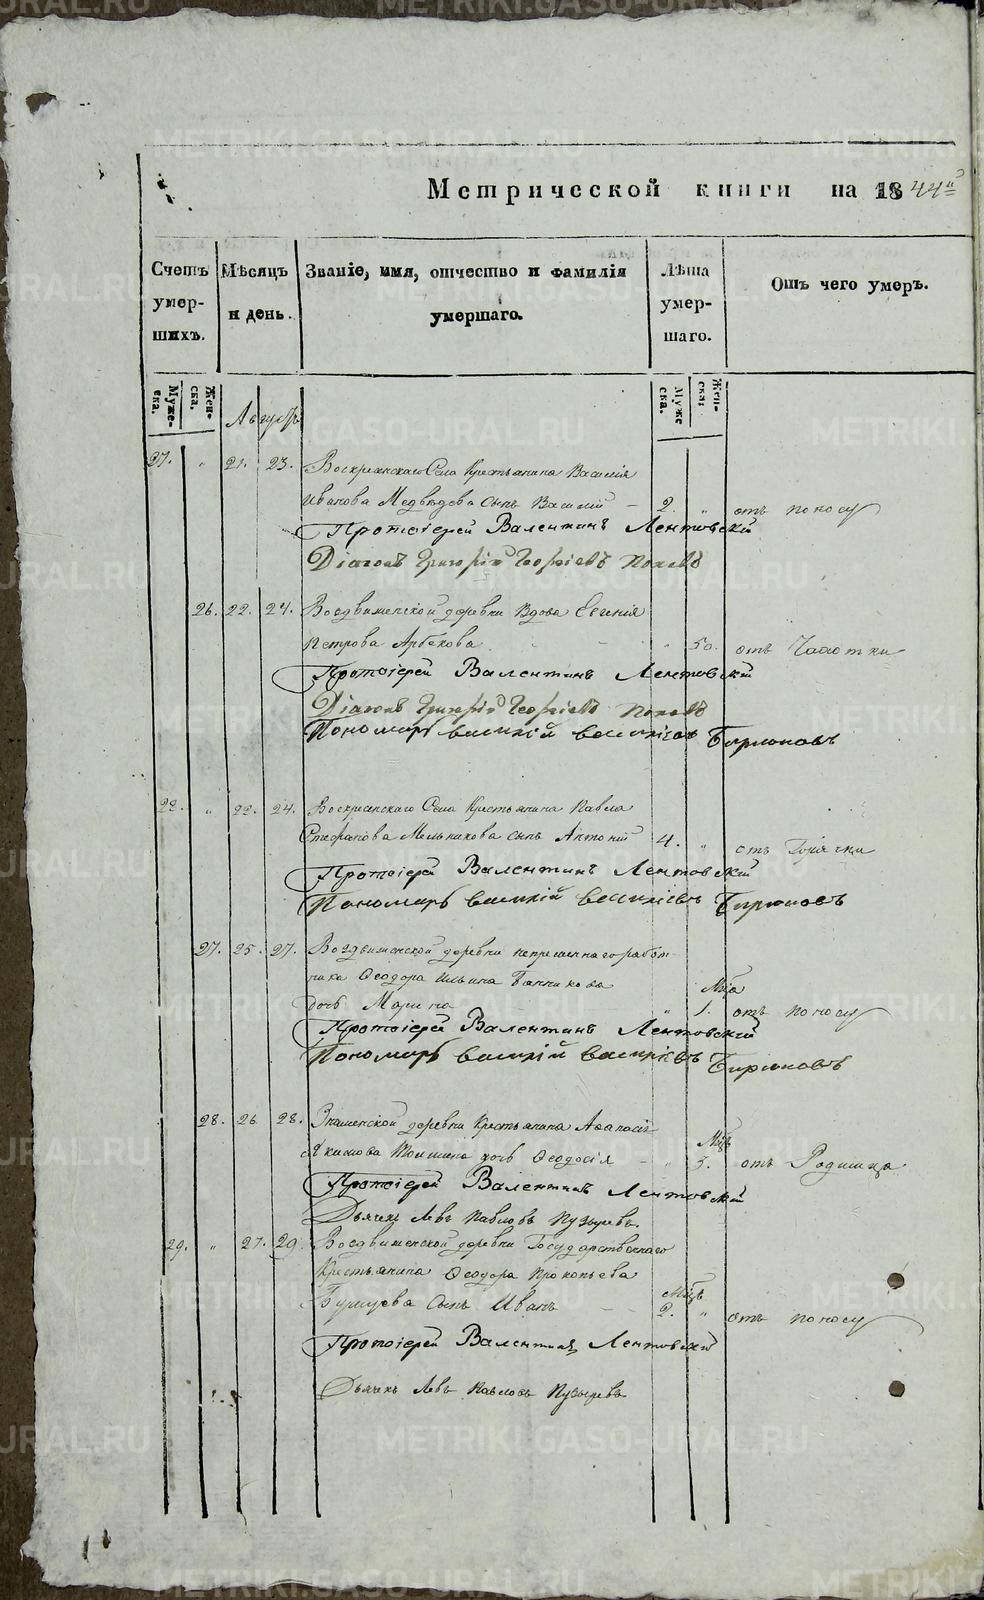 Метрической книги на 1844й
Счетъ умер-шихъ.
Мѣсяцъ и день.
Званіе, имя, отчество и фамилія умершаго.
Лѣта умер-шаго.
Отъ чего умеръ.
Муже-ска.
Жен-ска.
Муже ска.
Жен-ска:
Августъ
27. " 21. 23. Воскресенскаго Села Крестьянина Василія
Иванова Медведева Сынъ Василій — 2. " отъ поносу
Протоіерей Валентинъ Лентовскій
Діаконъ Григорій Георгіевъ Поповъ
26. 22. 24. Воздвиженской деревни Вдова Евгенія
Петрова " 50. отъ Чахотки
Протоіерей Валентинъ Лентовскій
Діаконъ Григорій Георгіевъ Поповъ
Пономарь Василій Василіевъ Бирюковъ
" 22. 24. Воскресенскаго Села Крестьянина Павла
Стефанова Мельникова сынъ Антоній 4. " отъ Горячки
Протоіерей Валентинъ Лентовскій
Пономарь Василій Василіевъ Бирюковъ
27. 25. 27. Воздвиженской деревни непременнаго работ-
ника Ѳеодора Ильина Банникова
дочь Марина " 1. отъ поносу
Протоіерей Валентинъ Лентовскій
Пономарь Василій Василіевъ Бирюковъ
28. 26 28. Знаменской деревни Крестьянина Аѳанасія
Якимова дочь Ѳеодосія — " 5. отъ Родимца
Протоіерей Валентинъ Лентовскій
Дьячекъ Левъ Павловъ Пузыревъ.
29. " 27. 29. Воздвиженской деревни Государственнаго
Крестьянина Ѳеодора Прокопьева
Сынъ Иванъ 2. " отъ поносу
Протоіерей Валентинъ Лентовскій
Дьячекъ Левъ Павловъ Пузыревъ
METRIKI.GASO-URAL.RU